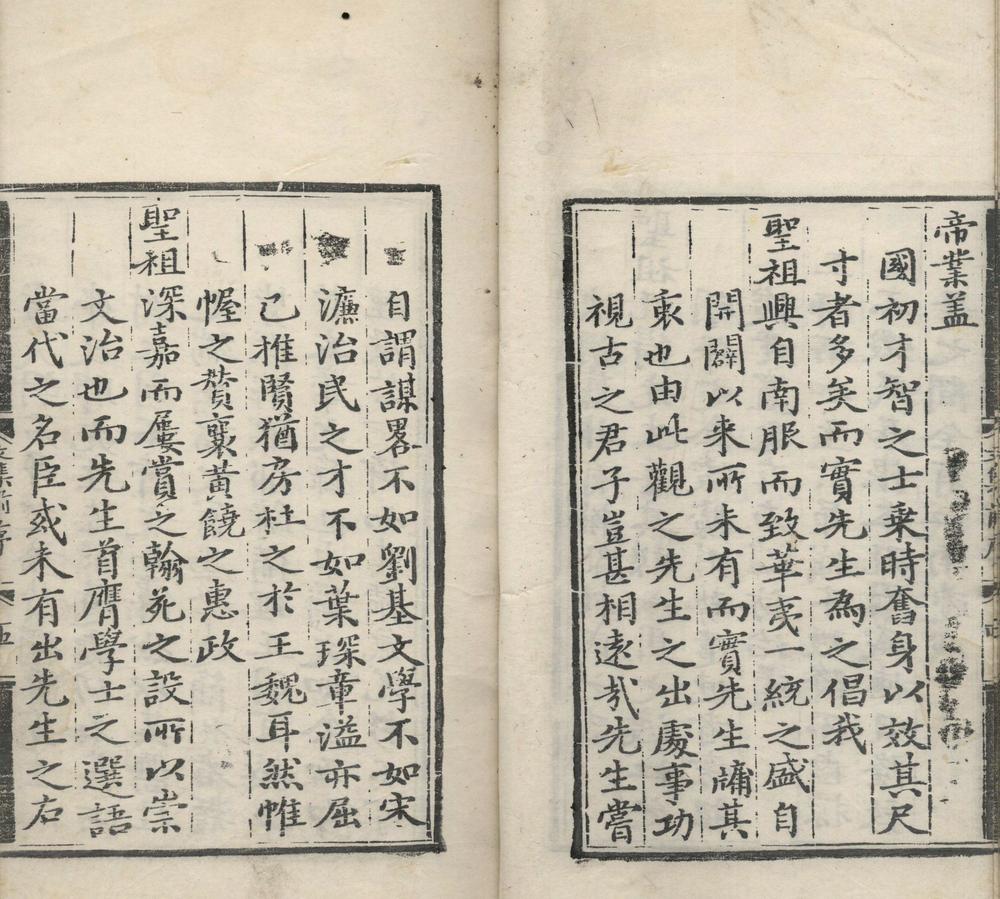 帝業盖
國初才智之士乗時奮身以效其尺
寸者多矣而實先生為之倡我
聖祖興自南服而致華夷一統之盛自
開闢以来所未有而實先生牗其
衷也由此觀之先生之出處事功
視古之君子豈甚相遠㢤先生嘗
自謂謀畧不如劉基文學不如宋
濂治民之才不如葉琛章溢亦屈
己推賢猶房杜之於王魏耳然帷
幄之賛襄黄饒之惠政
聖祖深嘉而屢賞之翰苑之設所以崇
文治也而先生首膺學士之選語
當代之名臣或未有出先生之右